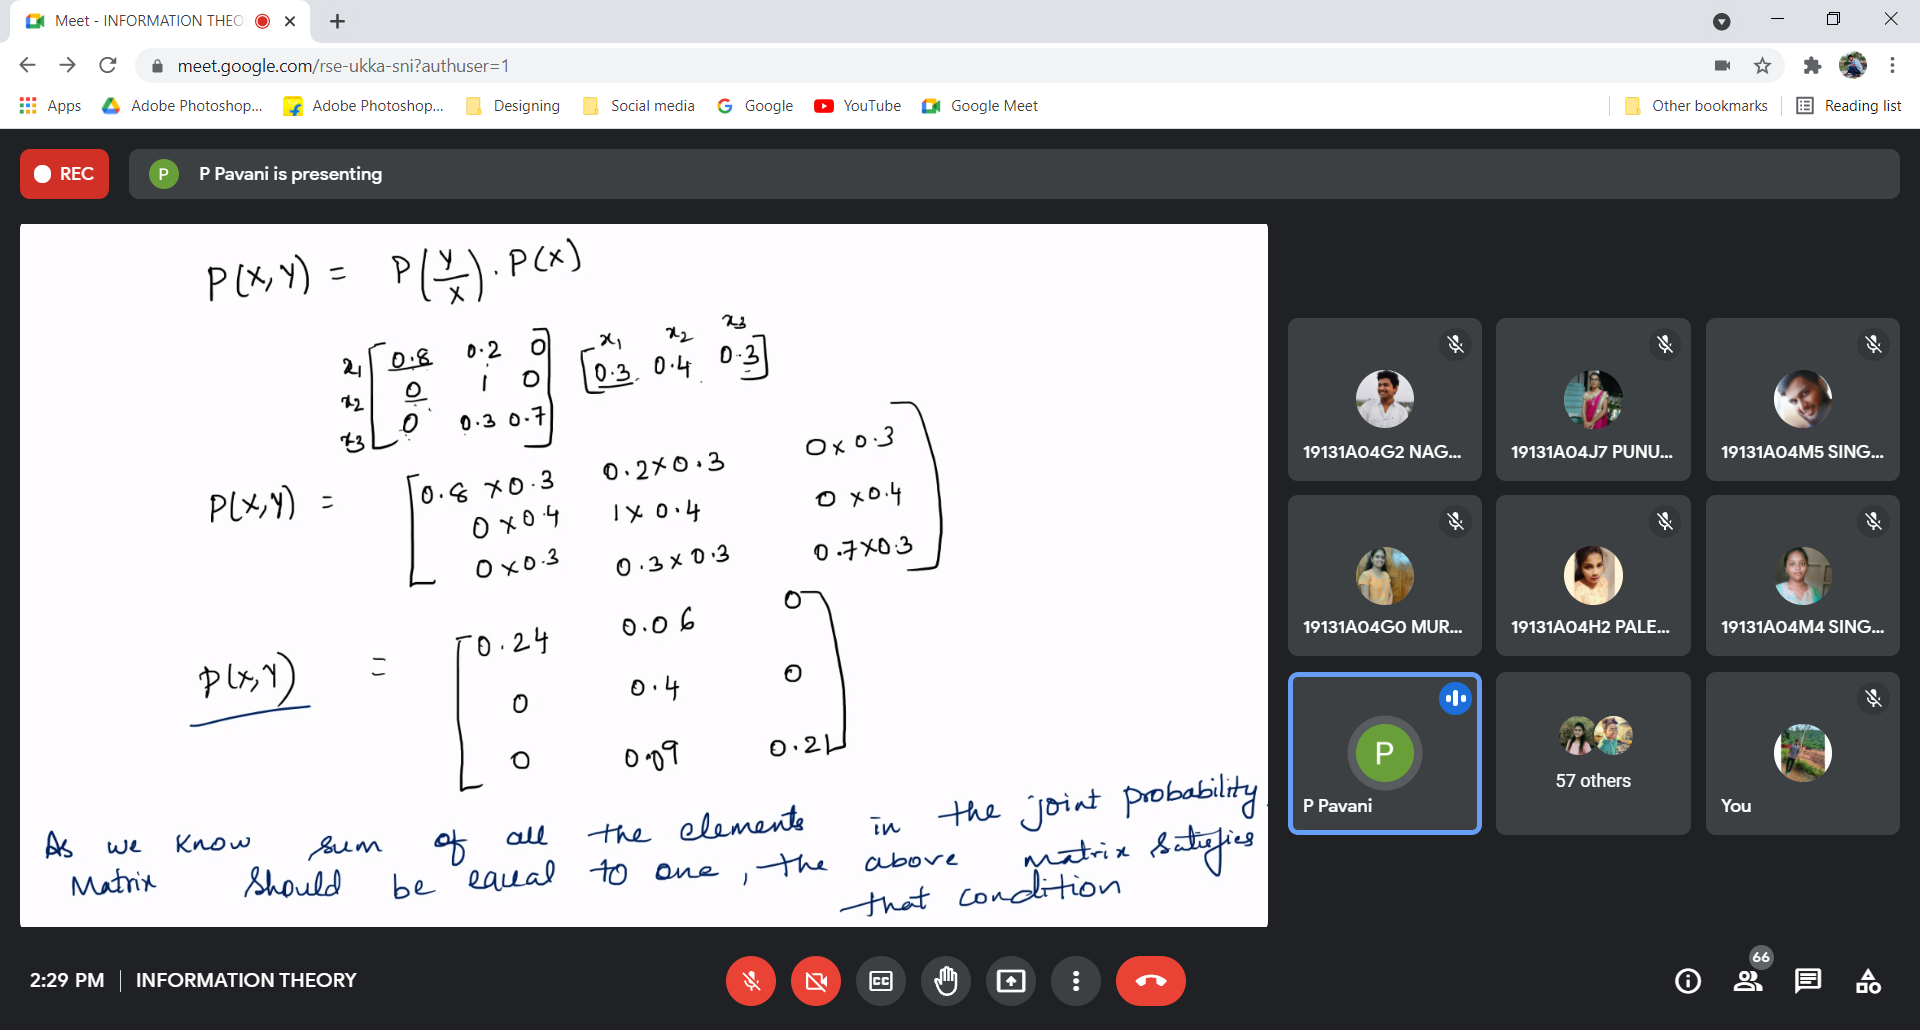 Meet - INFORMATION THEO
meet.google.com/rse-ukka-sni?authuser=1
Apps Adobe Photoshop... Adobe Photoshop... Designing Social media Google YouTube Google Meet Other bookmarks Reading list
REC
P P Pavani is presenting
P(X,Y) = P(Y/X) . P(X)
x1 x2 x3
x1 [0.8 0.2 0] [0.3 0.4 0.3]
x2 0 1 0
x3 0 0.3 0.7
P(X,Y) = [0.8 x0.3 0.2x0.3 0x0.3
0x0.4 1x0.4 0x0.4
0x0.3 0.3x0.3 0.7x0.3]
P(X,Y) = [0.24 0.06 0
0 0.4 0
0 0.09 0.21]
As we know sum of all the elements in the joint probability
Matrix should be equal to one, the above matrix satisfies
that condition
19131A04G2 NAG...
19131A04J7 PUNU...
19131A04M5 SING...
19131A04G0 MUR...
19131A04H2 PALE...
19131A04M4 SING...
P
P Pavani
57 others
You
2:29 PM | INFORMATION THEORY
CC
66